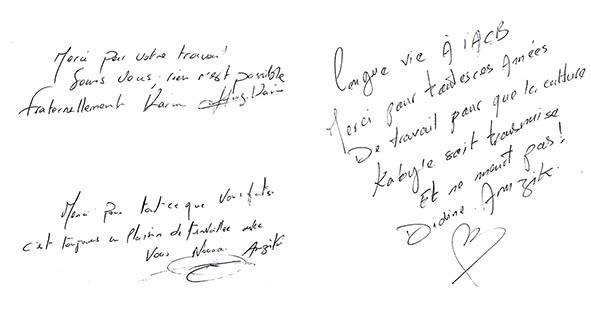 Merci pour votre travail
Sans vous, rien n'est possible
fraternellement Karim
Merci pour tout ce que vous faites
c'est toujours un plaisir de travailler avec
Vous Nassim Amzik
Longue vie À l'ACB
Merci pour toutes ces Années
De travail pour que la culture
Kabyle soit transmise
Et ne meurt pas!
Didine Amzik